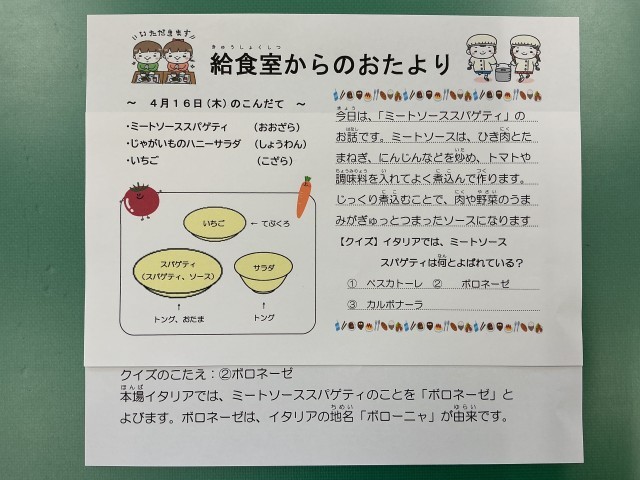 いただきます
給食室からのおたより
～ 4月16日(木)のこんだて ～
・ミートソーススパゲティ (おおざら)
・じゃがいものハニーサラダ (しょうわん)
・いちご (こざら)
いちご ← てぶくろ
スパゲティ
(スパゲティ、ソース)
サラダ
↑ ↑
トング、おたま トング
今日は、「ミートソーススパゲティ」の
お話です。ミートソースは、ひき肉とた
まねぎ、にんじんなどを炒め、トマトや
調味料を入れてよく煮込んで作ります。
じっくり煮込むことで、肉や野菜のうま
みがぎゅっとつまったソースになります
【クイズ】イタリアでは、ミートソース
スパゲティは何とよばれている？
① ペスカトーレ ② ボロネーゼ
③ カルボナーラ
クイズのこたえ：②ボロネーゼ
本場イタリアでは、ミートソーススパゲティのことを「ボロネーゼ」と
よびます。ボロネーゼは、イタリアの地名「ボローニャ」が由来です。